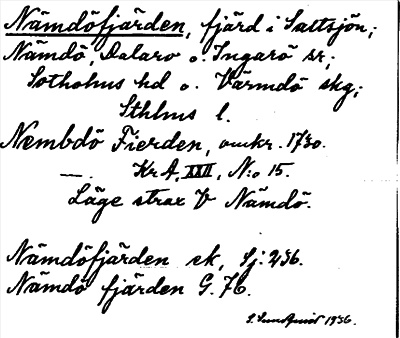 Nämdöfjärden, fjärd i Saltsjön;
Nämdö, Dalarö o. Ingarö sr;
Sotholms hd o. Värmdö skg;
Sthlms l.
Nembdö Fierden, omkr. 1730.
—. Kr A, XXII, N:o 15.
Läge strax V Nämdö.
Nämdöfjärden ek, Sj: 236.
Nämdö fjärden G. 76.
1936.